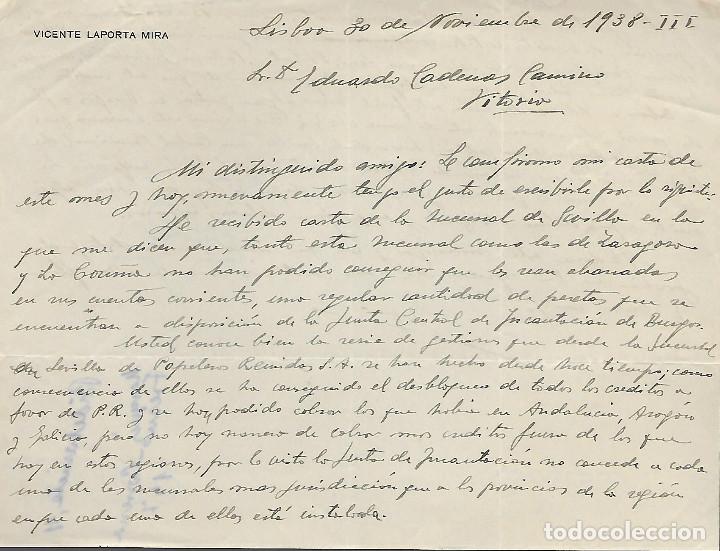 VICENTE LAPORTA MIRA
Lisboa 30 de Noviembre de 1938-III
Sr. D. Eduardo Cadenas Camino
Vitoria
Mi distinguido amigo: Le confirmo mi carta de
este mes y hoy nuevamente tengo el gusto de escribirle por lo siguiente:
He recibido carta de la sucursal de Sevilla en la
que me dicen que, tanto esta sucursal como las de Zaragoza
y La Coruña no han podido conseguir que les sean abonadas
en sus cuentas corrientes, una regular cantidad de pesetas que se
encuentran a disposición de la Junta Central de Incautación de Burgos.
Usted conoce bien la serie de gestiones que desde la Sucursal
de Sevilla de Papeleras Reunidas S.A. se han hecho desde hace tiempo; como
consecuencia de ellas se ha conseguido el desbloqueo de todos los creditos a
favor de P.R. y se hoy podido cobrar los que habia en Andalucia, Aragon
y Galicia, pero no hay manera de cobrar mas creditos fuera de los que
hay en estas regiones, por lo visto la Junta de Incautación no concede a cada
una de las sucursales mas jurisdiccion que a las provincias de la región
en que cada una de ellas está instalada.
todocoleccion